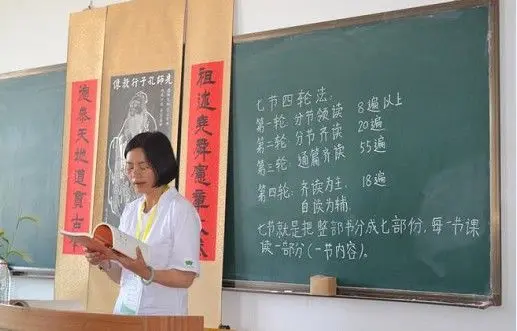 先師孔子行教像
祖述堯舜憲章文武
德叅天地道貫古今
七节四轮法:
第一轮:分节领读 8遍以上
第二轮:分节齐读 20遍
第三轮:通篇齐读 55遍
第四轮:齐读为主, 18遍
自读为辅.
七节就是把整部书分成七部份,每一节课
读一部分(一节内容)。